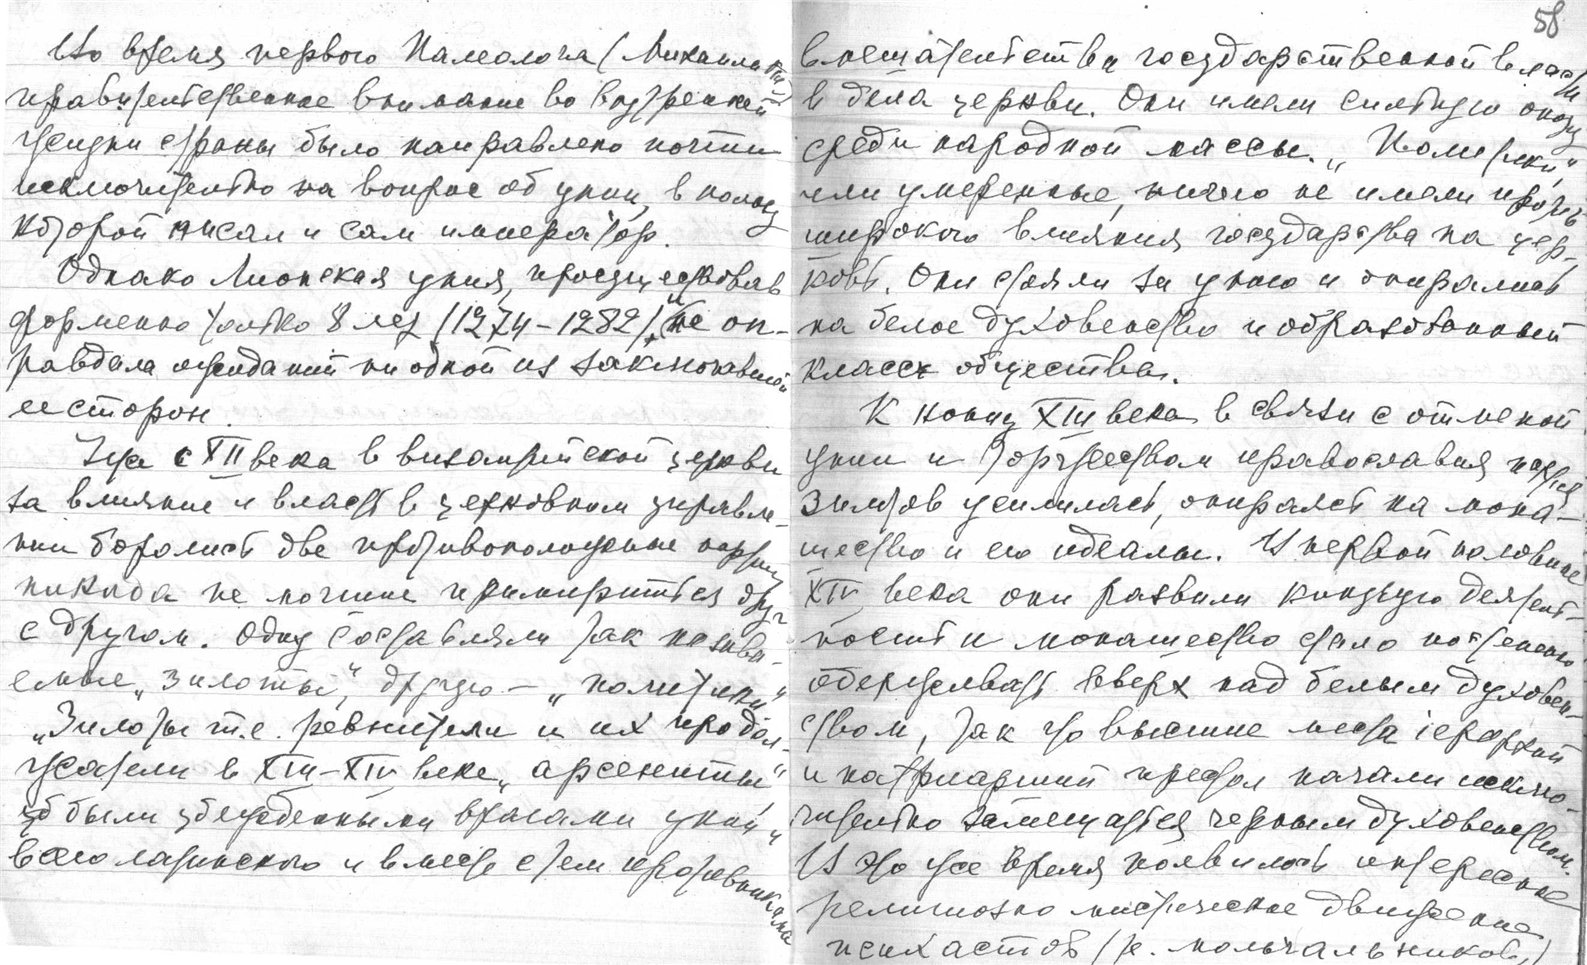 Во время первого Палеолога (Михаила VIII)
правительственное внимание во внутренней
жизни страны было направлено почти
исключительно на вопрос об унии, в пользу
которой писал и сам император.
Однако Лионская уния, просуществовав
форменно только 8 лет (1274-1282), не оп-
равдала ожиданий ни одной из заключавшей
ее сторон.
Уже с XII века в византийской церкви
за влияние и власть в церковном управле-
нии боролись две противоположные партии
никогда не могшие примириться друг
с другом. Одну составляли так называ-
емые „зилоты", другую - „политики"
„Зилоты т.е. ревнители и их продол-
жатели в XIII-XIV веке „арсениты"
были убежденными врагами унии и
всего латинского и вместе с тем противниками
58
вмешательства государственной власти
в дела церкви. Они имели сильную опору
среди народной массы. „Политики",
или умеренные, ничего не имели против
широкого влияния государства на цер-
ковь. Они стояли за унию и опирались
на белое духовенство и образованный
класс общества.
К концу XIII века в связи с отменой
унии и торжеством православия партия
зилотов усилилась, опираясь на мона-
шество и его идеалы. В первой половине
XIV века они развили кипучую деятель-
ность и монашество стало постепенно
одерживать вверх над белым духовен-
ством, так что высшие места іерархии
и патриарший престол начали исклю-
чительно замещаться черным духовенством.
В это же время появилось интересное
религиозно мистическое движение
исихастов (т.е. молчальников,)